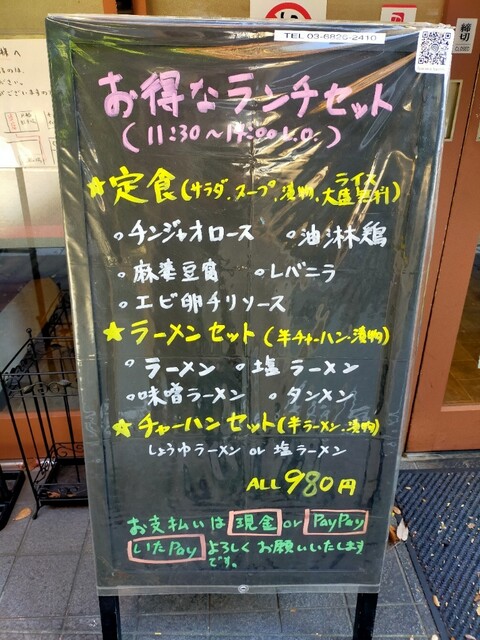 TEL 03-6826-2410
締切
お得なランチセット
(11:30～15:00 L.O.)
☆定食(サラダ、スープ、漬物、ライス大盛無料)
○チンジャオロース ○油淋鶏
○麻婆豆腐 ○レバニラ
○エビ卵チリソース
★ラーメンセット(半チャーハン、漬物)
○ラーメン ○塩ラーメン
○味噌ラーメン ○タンメン
★チャーハンセット(半ラーメン、漬物)
しょうゆラーメン or 塩ラーメン
ALL 980円
お支払いは 現金 or PayPay
いたPay よろしくお願いいたします
です。